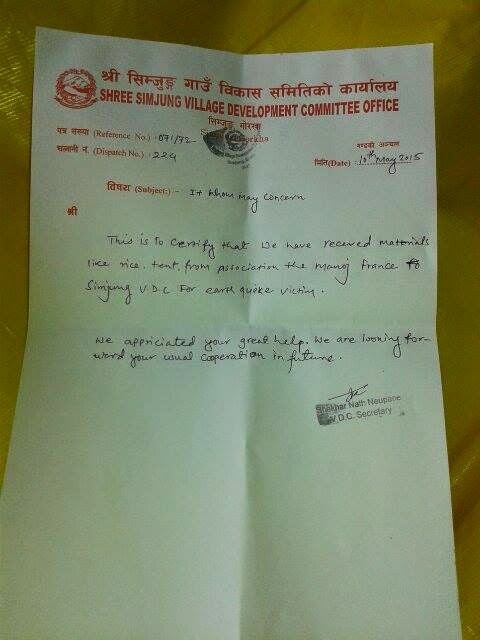 श्री सिम्जुङ्ग गाउँ विकास समितिको कार्यालय
SHREE SIMJUNG VILLAGE DEVELOPMENT COMMITTEE OFFICE
सिम्जुङ्ग गोरखा
पत्र संख्या (Reference No.) :- 071/72
गण्डकी अञ्चल
चलानी न. (Dispatch No.) :- 229
मिति(Date) : 10th May 2015
विषय (Subject:) :- It Whom May Concern
श्री
This is to certify that we have receved materials
like rice, tent, from association the manoj france to
Simjung V.D.C For earth quoke victim.
We appriciated your great help. We are looing for-
word your usual cooperation in future.
Shekhar Nath Neupane
V.D.C. Secretary